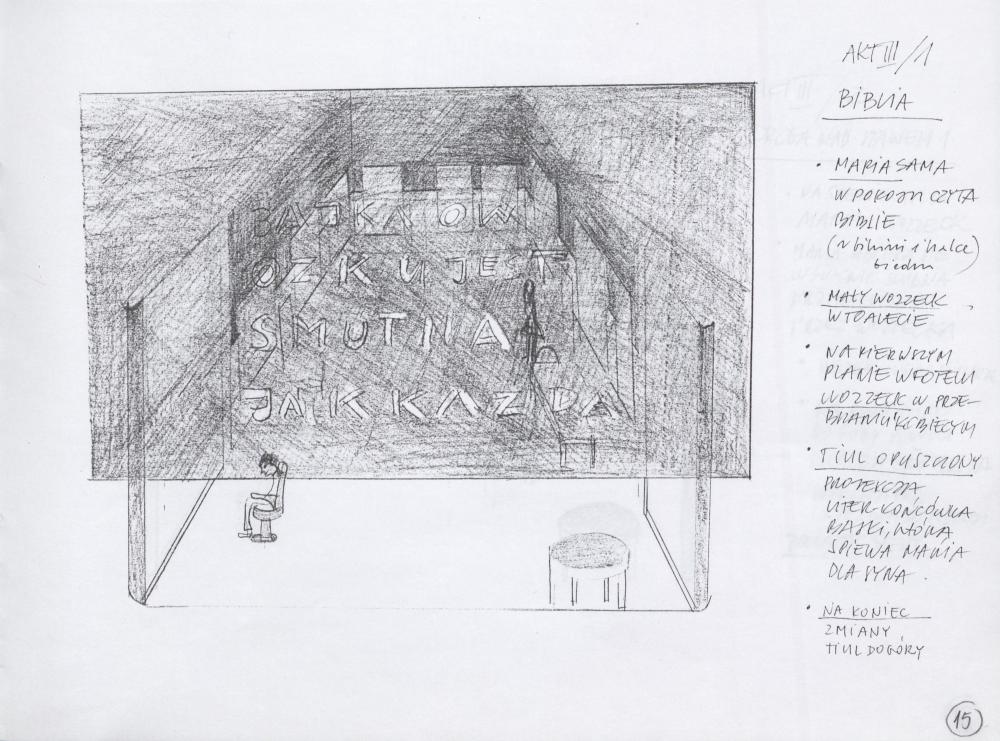 AKT III/1
BIBLIA
• MARIA SAMA
W POKOJU CZYTA
BIBLIE
(w bikini i halce)
• MAŁY WOZZECK
W TOALECIE
• NA PIERWSZYM
PLANIE W FOTELU
WOZZECK W PRZE-
BRANIU KOBIECYM
• TIUL OPUSZCZONY
PROJEKCJA
LITER-KOŃCÓWKA
BAJKI, KTÓRĄ
ŚPIEWA MARIA
DLA SYNA.
• NA KONIEC
ZMIANY
TIUL DO GÓRY
BAJKA O W
OZKU JEST
SMUTNA
JAK KAŻDA
15